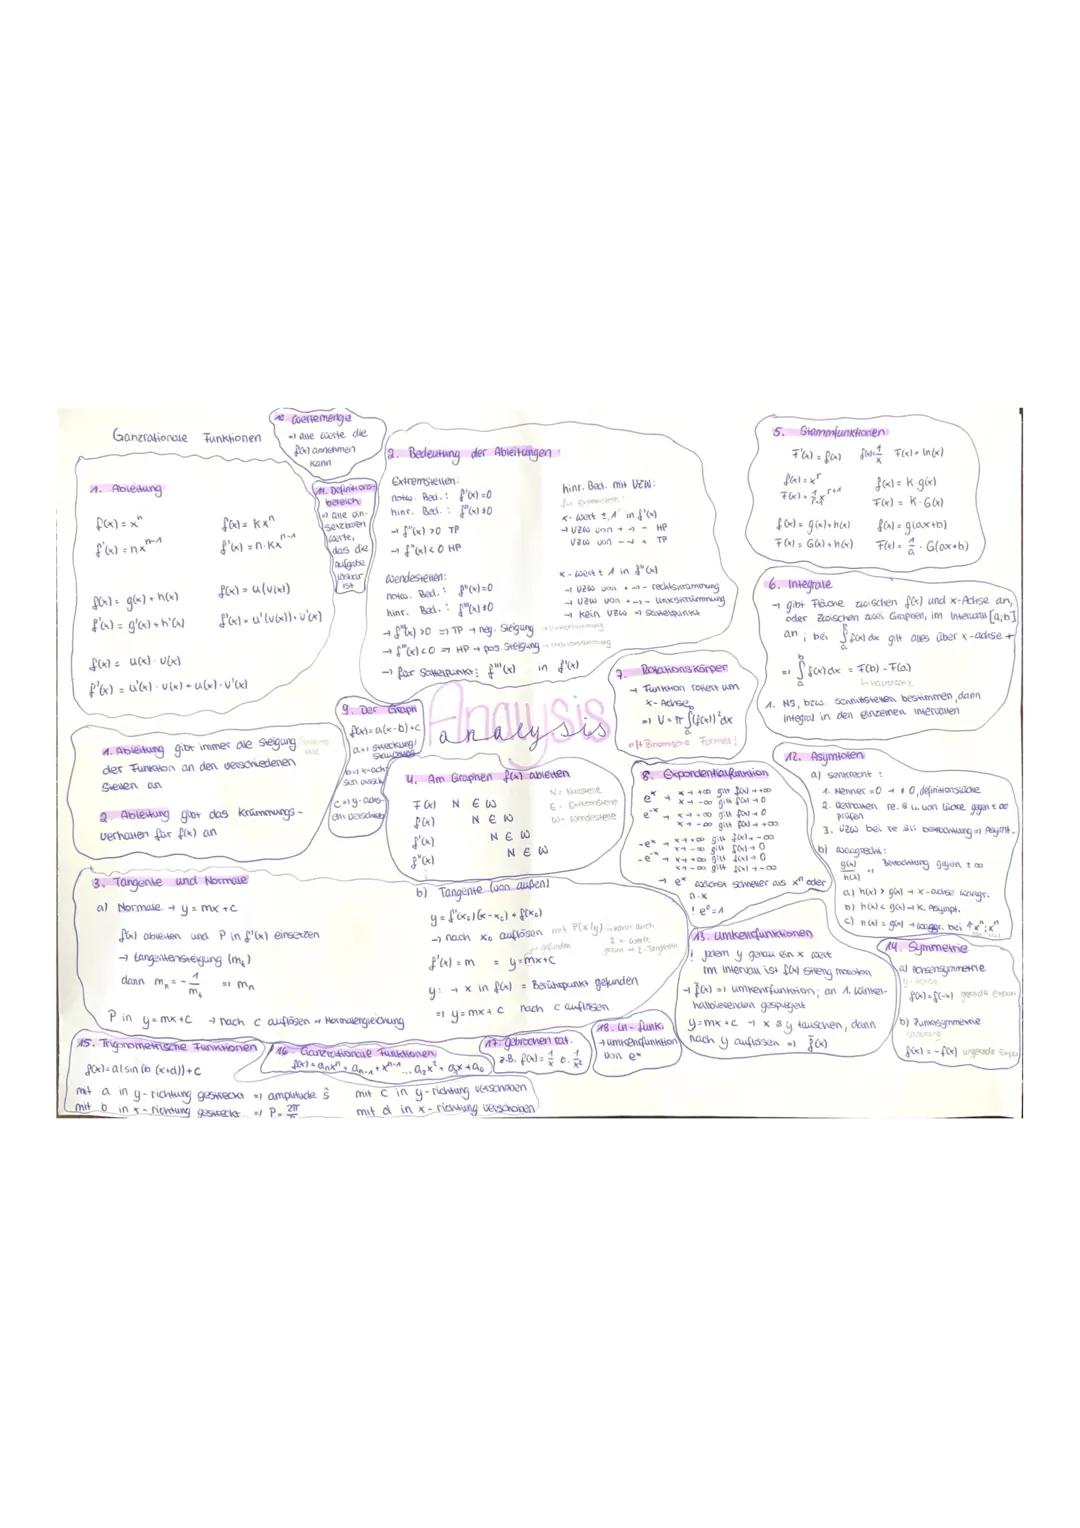 Ganzrationale Funktionen
10. Wertemenge
=> alle Werte die
f(x) annehmen
kann
1. Ableitung
f(x) = xⁿ
f'(x) = nxⁿ⁻¹
f(x) = Kxⁿ
f'(x) = n·Kxⁿ⁻¹
f(x) = g(x) + h(x)
f'(x) = g'(x) + h'(x)
f(x) = u(v(x))
f'(x) = u'(v(x))·v'(x)
f(x) = u(x) · v(x)
f'(x) = u'(x) · v(x) + u(x) · v'(x)
11. Definitions-
bereich
=> alle ein-
setzbaren
Werte,
das die
Aufgabe
lösbar
ist
2. Bedeutung der Ableitungen
Extremstellen:
notw. Bed.: f'(x) = 0
hinr. Bed.: f''(x) ≠ 0
→ f''(x) > 0 TP
→ f''(x) < 0 HP
Wendestellen:
notw. Bed.: f''(x) = 0
hinr. Bed.: f'''(x) ≠ 0
→ f'''(x) > 0 => TP → neg. Steigung
→ f'''(x) < 0 => HP → pos. Steigung
→ für Sattelpunkt: f'''(x) in f'(x)
hinr. Bed. mit VZW:
für Extremstelle:
x-Wert ± 1 in f'(x)
→ VZW von + → - HP
VZW von - → + TP
x-Wert ± 1 in f''(x)
→ VZW von + → - rechtskrümmung
→ VZW von + → - linkskrümmung
→ kein VZW → Sattelpunkt
5. Stammfunktionen
F'(x) = f(x) f(x) = 1/x F(x) = ln(x)
f(x) = xʳ
F(x) = 1/r+1 xʳ⁺¹
f(x) = K·g(x)
F(x) = K·G(x)
f(x) = g(x) + h(x)
F(x) = G(x) + h(x)
f(x) = g(ax+b)
F(x) = 1/a · G(ax+b)
6. Integrale
→ gibt Fläche zwischen f(x) und x-Achse an,
oder zwischen zwei Graphen, im Intervall [a;b]
an; bei ∫ f(x) dx gilt alles über x-achse +
=> ∫ f(x) dx = F(b) - F(a)
↳ Hauptsatz
1. NS, bzw. Schnittstellen bestimmen, dann
Integral in den einzelnen Intervallen
7. Rotationskörper
→ Funktion rotiert um
x-Achse
=> V = π ∫ (f(x))² dx
oft Binomische Formel!
1. Ableitung gibt immer die Steigung
der Funktion an den verschiedenen
Stellen an
2. Ableitung gibt das Krümmungs-
verhalten für f(x) an
9. Der Graph
f(x) = a(x-b)+c
a => Streckung/
Stauchung
b => x-ach-
c => y-achs-
Analysis
analysis
4. Am Graphen f(x) ableiten
F(x) N E W
f(x) N E W
f'(x) N E W
f''(x) N E W
N = Nullstelle
E = Extremstelle
W = Wendestelle
8. Exponentialfunktion
eˣ → x → +∞ gilt f(x) → +∞
x → -∞ gilt f(x) → 0
e⁻ˣ → x → +∞ gilt f(x) → 0
x → -∞ gilt f(x) → +∞
-eˣ → x → +∞ gilt f(x) → -∞
x → -∞ gilt f(x) → 0
-e⁻ˣ → x → +∞ gilt f(x) → 0
x → -∞ gilt f(x) → -∞
→ eˣ wächst schneller als xⁿ oder
n·x
! e⁰ = 1
12. Asymtoten
a) senkrecht:
1. Nenner = 0 → ≠ 0, definitionslücke
2. Verhalten re. & li. von Lücke gegen ± ∞
prüfen
3. VZW bei re & li betrachtung => Asymt.
b) waagrecht:
g(x)/h(x) Betrachtung gegen ± ∞
a) h(x) > g(x) → x-achse waagr.
b) h(x) < g(x) → K. Asympt.
c) h(x) = g(x) → waagr. bei
3. Tangente und Normale
a) Normale → y = mx + c
f(x) ableiten und P in f'(x) einsetzen
→ Tangentensteigung (mₜ)
dann mₙ = - 1/mₜ => mₙ
P in y = mx + c → nach c auflösen → Normalengleichung
b) Tangente (von außen)
y = f'(x₀)(x-x₀) + f(x₀)
→ nach x₀ auflösen mit P(x/y) → kann auch
2 x-Werte
geben => 2 Tangenten
f'(x) = m = y = mx + c
y: → x in f(x) = Berührpunkt gefunden
=> y = mx + c nach c auflösen
13. Umkehrfunktionen
! jedem y genau ein x wert
im Intervall ist f(x) streng monoton
→ f̄(x) => Umkehrfunktion; an 1. Winkel-
halbierenden gespiegelt
y = mx + c → x & y tauschen, dann
nach y auflösen => f̄(x)
14. Symmetrie
a) Achsensymmetrie
y-Achse
f(x) = f(-x) gerade Expon
b) Punksymmetrie
Ursprung
f(x) = -f(x) ungerade Expo
15. Trigonometrische Funktionen
f(x) = a(sin(b(x+d)) + c
mit a in y-richtung gestreckt => amplitude
mit b in x-richtung gestreckt => P = 2π
mit c in y-richtung verschoben
mit d in x-richtung verschoben
16. Ganzrationale Funktionen
f(x) = aₙxⁿ + aₙ₋₁ + xⁿ⁻¹ ... a₂x² + a₁x + a₀
17. gebrochen rat.
z.B. f(x) = 1/x o. 1/x²
18. ln-funk.
→ umkehrfunktion
von eˣ